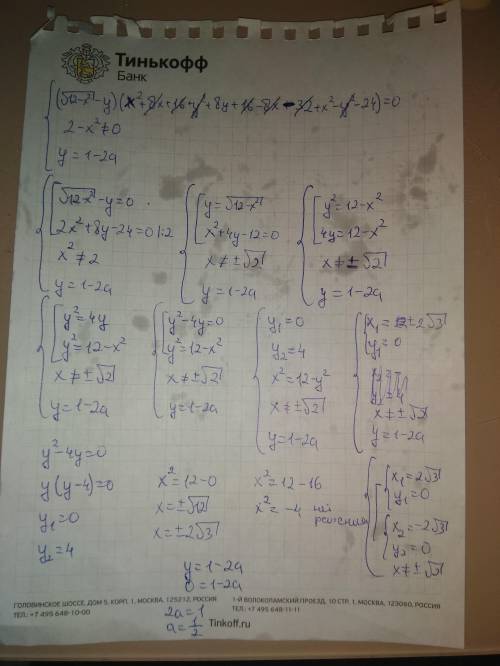 Тинькофф
Банк
(√12-x² - y)(x²+8x+16+y²+8y+16-8x-32+x²-y²-24)=0
2-x²≠0
y=1-2a
√12-x² - y=0
2x²+8y-24=0 |:2
x²≠2
y=1-2a
y=√12-x²
x²+4y-12=0
x≠±√2
y=1-2a
y²=12-x²
4y=12-x²
x≠±√2
y=1-2a
y²=4y
y²=12-x²
x≠±√2
y=1-2a
y²-4y=0
y²=12-x²
x≠±√2
y=1-2a
y₁=0
y₂=4
x²=12-y²
x≠±√2
y=1-2a
x₁=±2√3
y₁=0
x≠±√2
y=1-2a
y²-4y=0
y(y-4)=0
y₁=0
y₂=4
x²=12-0
x=±√12
x=±2√3
x²=12-16
x²=-4 нет
решений
x₁=2√3
y₁=0
x₂=-2√3
y₂=0
x≠±√2
y=1-2a
0=1-2a
2a=1
a=1/2
ГОЛОВИНСКОЕ ШОССЕ, ДОМ 5, КОРП. 1, МОСКВА, 125212, РОССИЯ
ТЕЛ.: +7 495 648-10-00
1-Й ВОЛОКОЛАМСКИЙ ПРОЕЗД, 10 СТР. 1, МОСКВА, 123060, РОССИЯ
ТЕЛ. +7 495 648-11-11
Tinkoff.ru